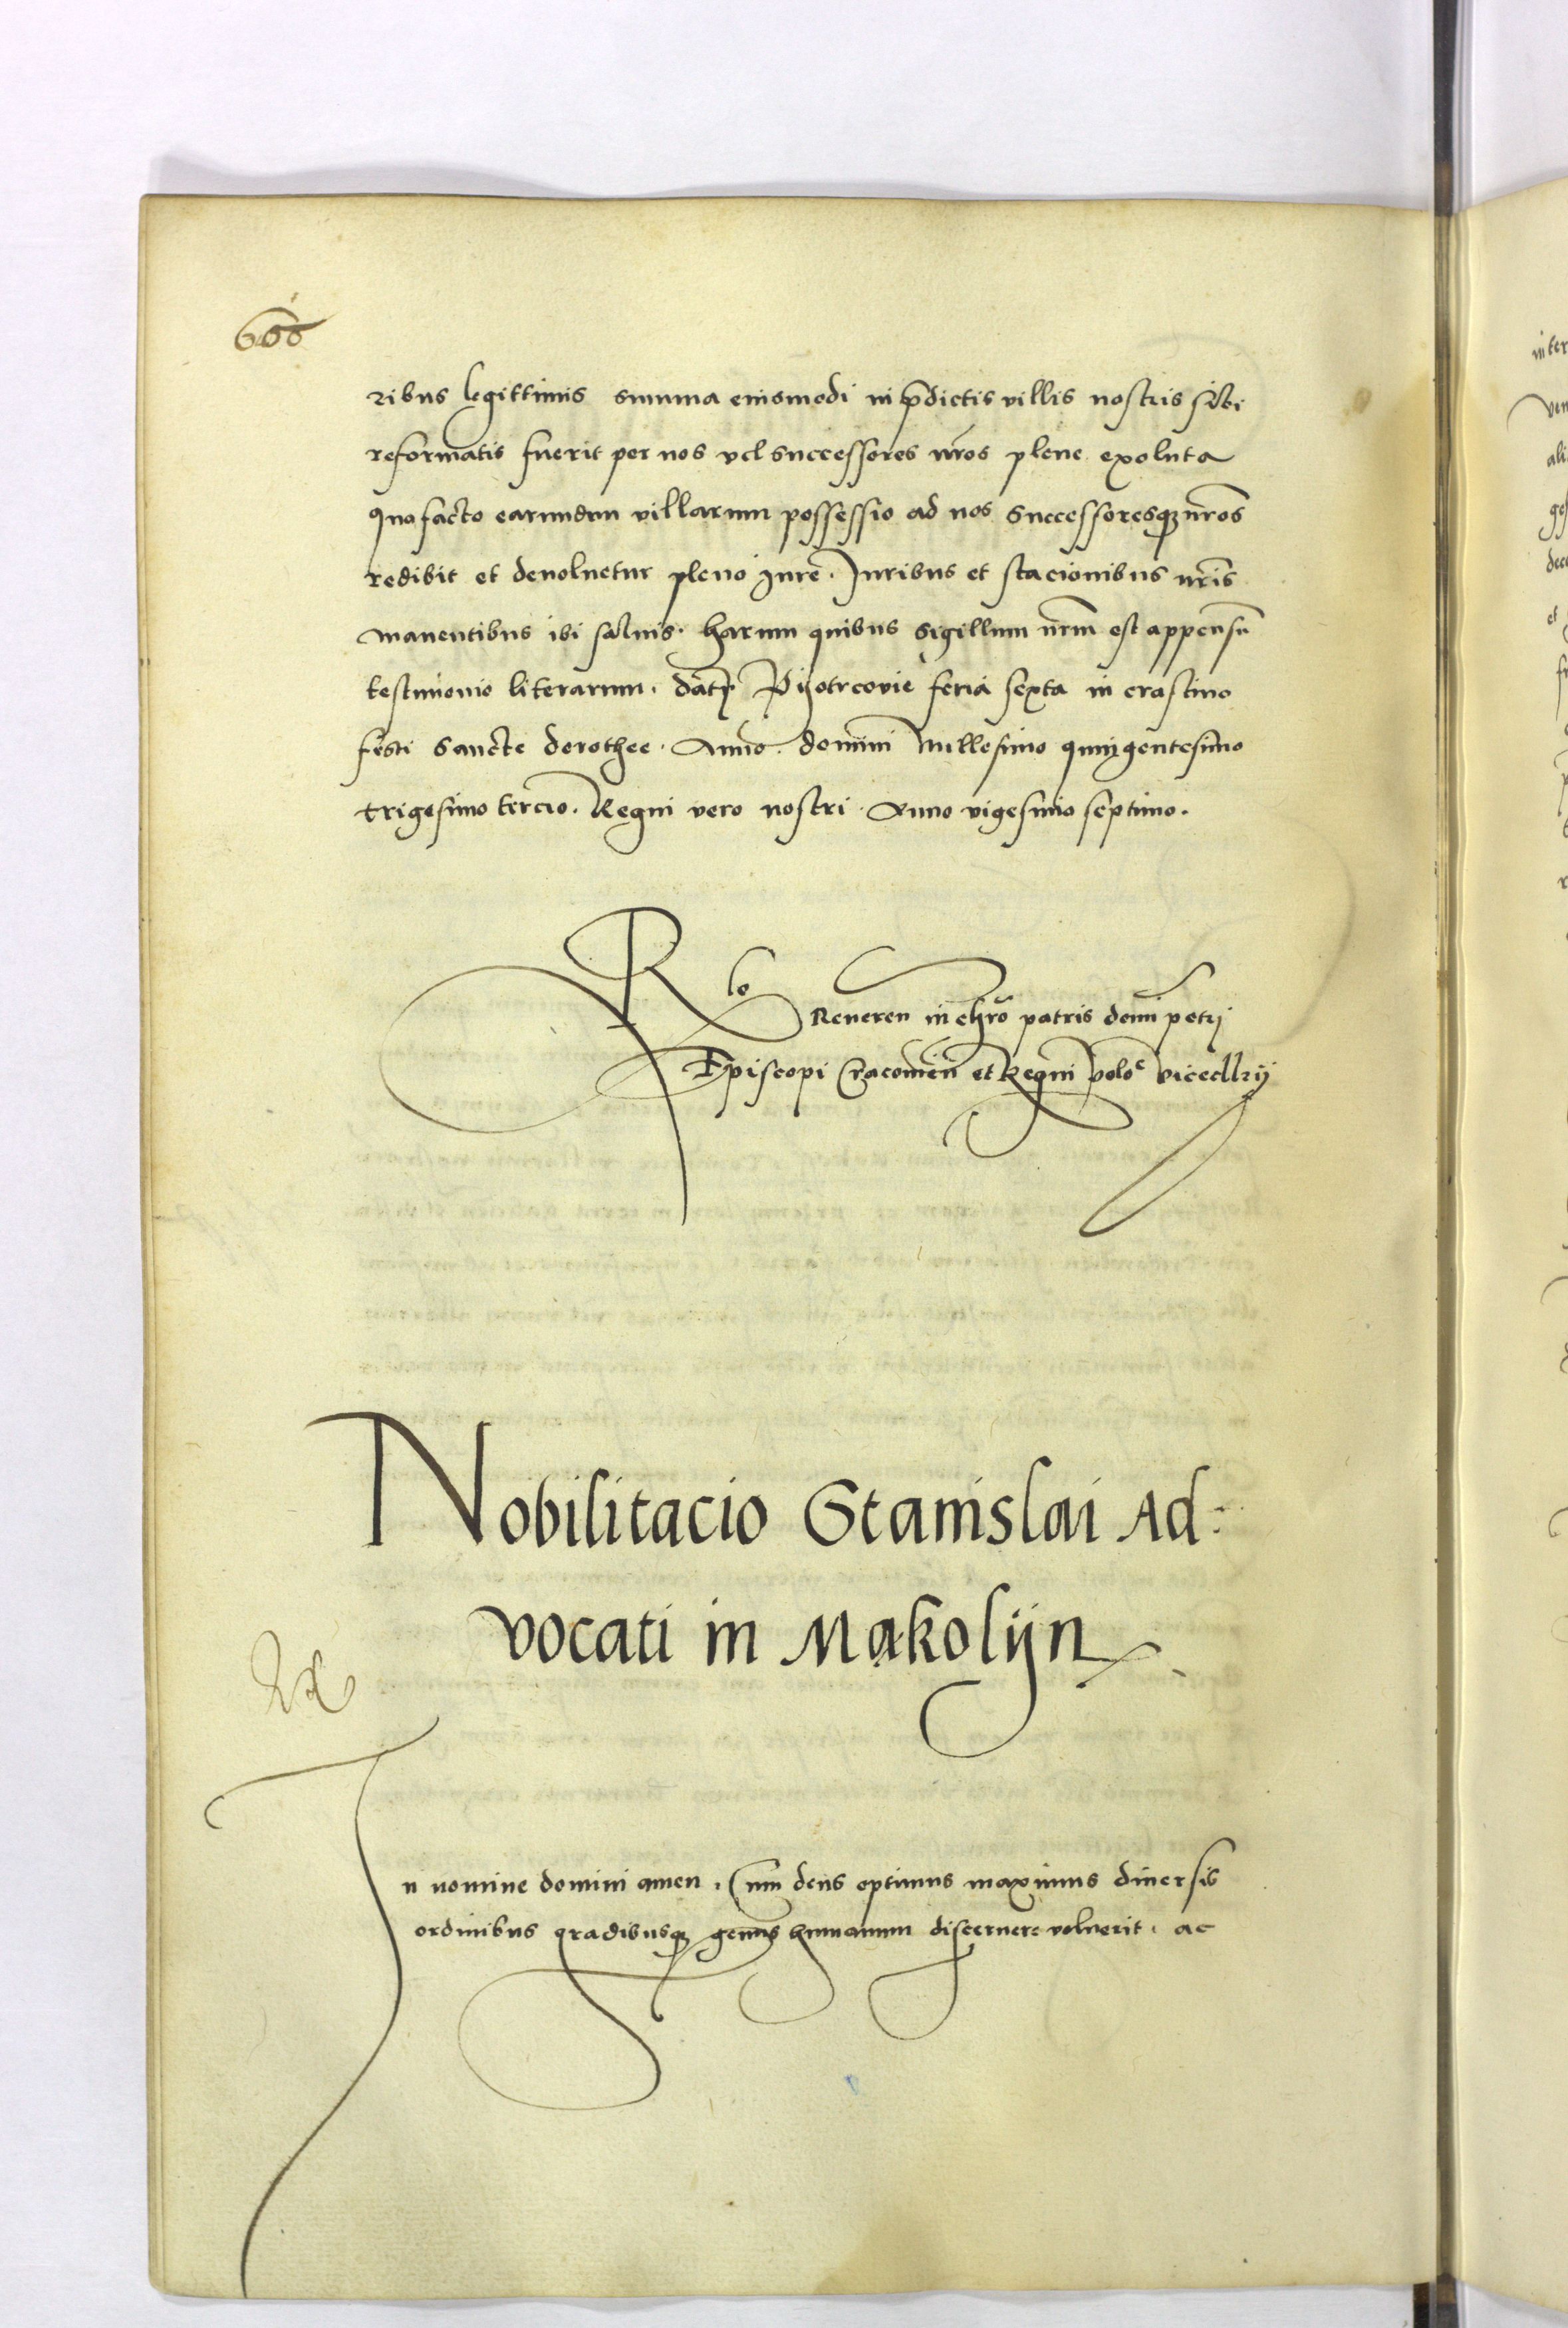 600
ribus legittimis summa eiusmodi in p̄dictis villis nostris sibi
reformatis fuerit per nos vel successores nr̄os plene exoluta
quo facto earundem villarum possessio ad nos successoresqꝫ nr̄os
redibit et devoluetur pleno Jure. Juribus et stacionibus nr̄is
manentibus ibi saluis. harum quibus sigillum nr̄m est appensū
testimonio literarum. dat̄ Pijotrcovie feria sexta in crastino
festi sancte dorothee. Anno domini Millesimo quingentesimo
trigesimo tercio. Regni vero nostri Anno vigesimo septimo.
Rlo
Reueren in chr̄o patris domi petri
Episcopi Cracovien̄ et Regni polo^e vicecll̄rij
Nobilitacio Stanislai Ad:
vocati in Makolijn
In nomine domini amen. Cum deus optimus maximus diuersis
ordinibus gradibusqꝫ genus humanum discernere voluerit. ac